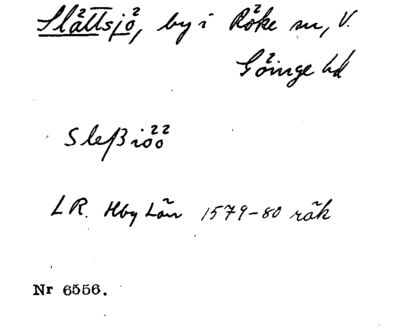 Slättsjö, by i Röke sn, V.
Göinge hd
Sleßiöö
LR. Hby Län 1579-80 räk
Nr 6556.